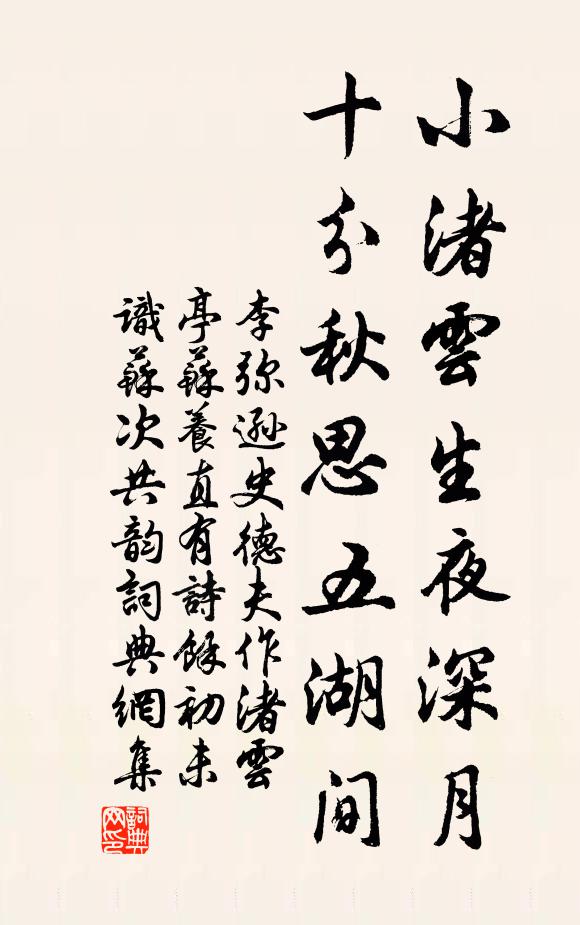 小渚雲生夜深月
十分秋思五湖間
李弥遜史德夫作渚雲
亭蘇養直有詩餘初未
識蘇次共韵詞典網集
詞典
网印